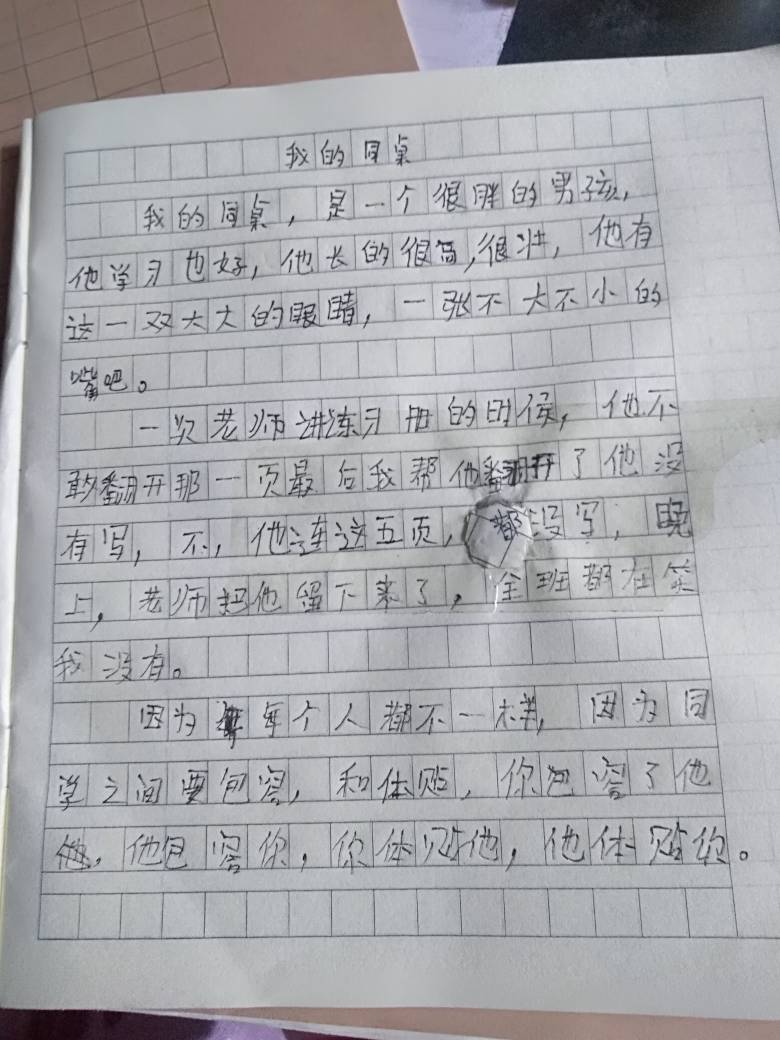 我的同桌
我的同桌，是一个很胖的男孩，
他学习也好，他长的很高，很壮，他有
这一双大大的眼睛，一张不大不小的
嘴吧。
一次老师讲练习册的时候，他不
敢翻开那一页最后我帮他翻开了他没
有写，不，他连这五页，都没写，晚
上，老师把他留下来了，全班都在笑
我没有。
因为每个人都不一样，因为同
学之间要包容，和体贴，你包容了他
他，他包容你，你体贴他，他体贴你。